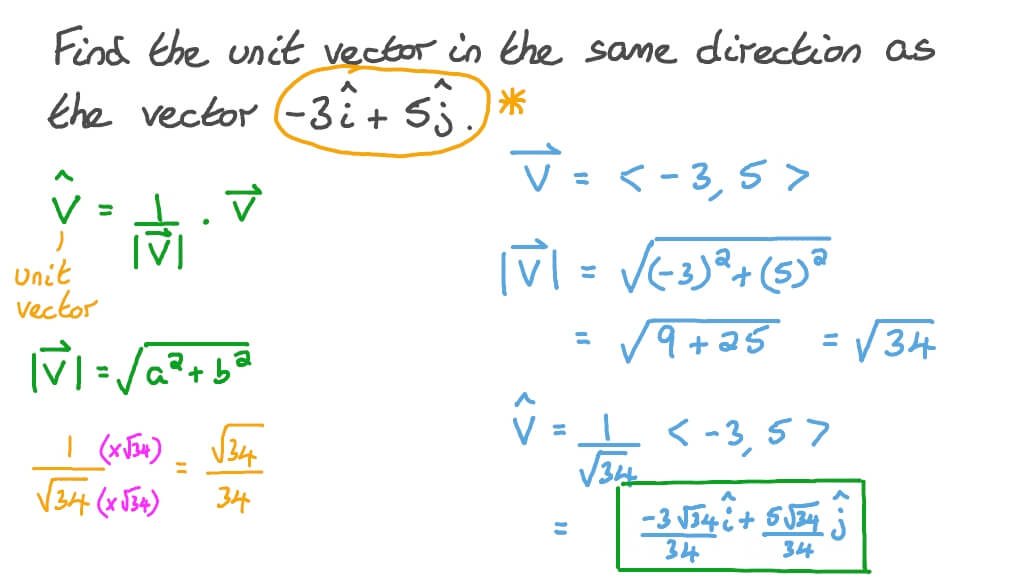 Find the unit vector in the same direction as
the vector -3î + 5ĵ. *
v̂ = 1/|v⃗| · v⃗
unit
vector
|v⃗| = √(a² + b²)
1 (x√34) / √34 (x√34) = √34/34
v⃗ = < -3, 5 >
|v⃗| = √((-3)² + (5)²)
= √(9 + 25) = √34
v̂ = 1/√34 < -3, 5 >
= -3√34/34 î + 5√34/34 ĵ